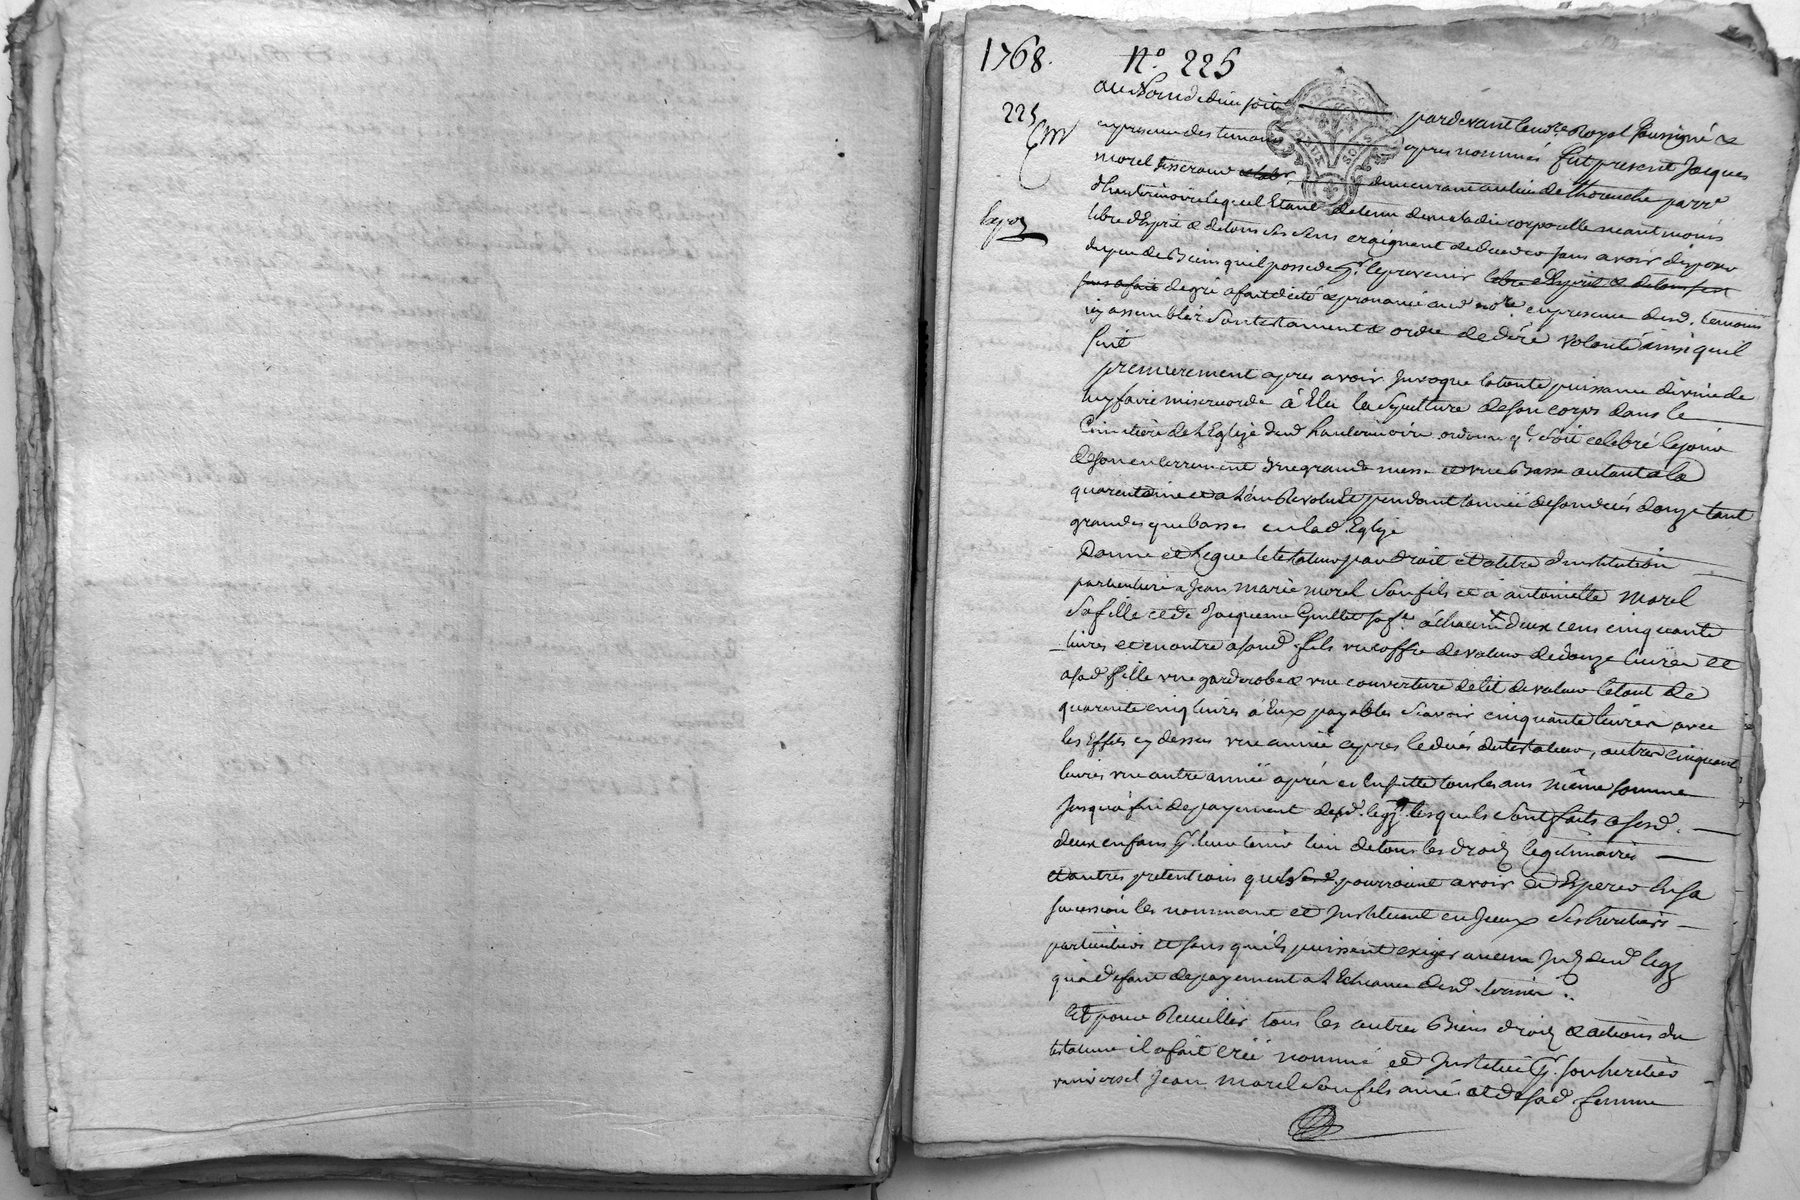 1768. N.o 225
225
au Nom de dieu soit pardevant le no.re Royal soussigné &
en presence des temoins apres nommés fut present Jacques
morel tisserand demeurant au lieu de Thorenche parr.e
d'hauterivoire lequel Etant detenu de maladie corporelle neant moins
libre d'Esprit & de tous ses sens craignant de deceder sans avoir disposé
du peu de Biens quil possede p.r le prevenir libre d'Esprit & de tous ses
sens a fait de gré a fait dicté & prononcé aud no.re en presence desd. temoins
icy assemblés son testament & ordre de der.e volonté ainsi quil
suit
premierement apres avoir Invoqué la toute puissance divine de
luy faire misericorde à Elu la sepulture de son corps dans le
Cimetiere de l'Eglize dud hauterivoire ordonne q.l soit celebré le jour
de son enterrement une grande messe et une Basse autant a la
quarentaine et a l'an Revolu Et pendant l'année de son decés donze tant
grandes que basses en lad. Eglize
Donne et Legue le testateur par droit et titre d'institution
particuliere a Jean marie morel son fils et à antoinette morel
sa fille et de Jacqueme Guillot sa f.e à chacun deux cens cinquante
livres et en outre a sond. fils un coffre de valeur de donze livres et
a sad. fille une garderobe & une couverture de lit de valeur le tout de
quarente cinq livres à Eux payables scavoir cinquante livres avec
les Effets cy dessus une année apres le decés du testateur, autres cinquante
livres une autre année aprés et ensuitte tous les ans même somme
Jusqu'à fin de payement desd. legz. lesquels sont faits a sesd.
deux enfans p.r leur tenir lieu de tous les droitz legitimaires
et autres pretentions quels pourroient avoir et Esperer en sa
succession les nommant et Instituant en Iceux ses heritiers
particuliers et sans quils puissent exiger aucun dud legz
qu'a defaut de payement a l'Echeance dud. terme.
Et pour Recueillir tous les autres Biens droitz & actions du
testateur il a fait créé nommé et Institué p.r son heritier
universel Jean morel son fils ainé et de sad. femme